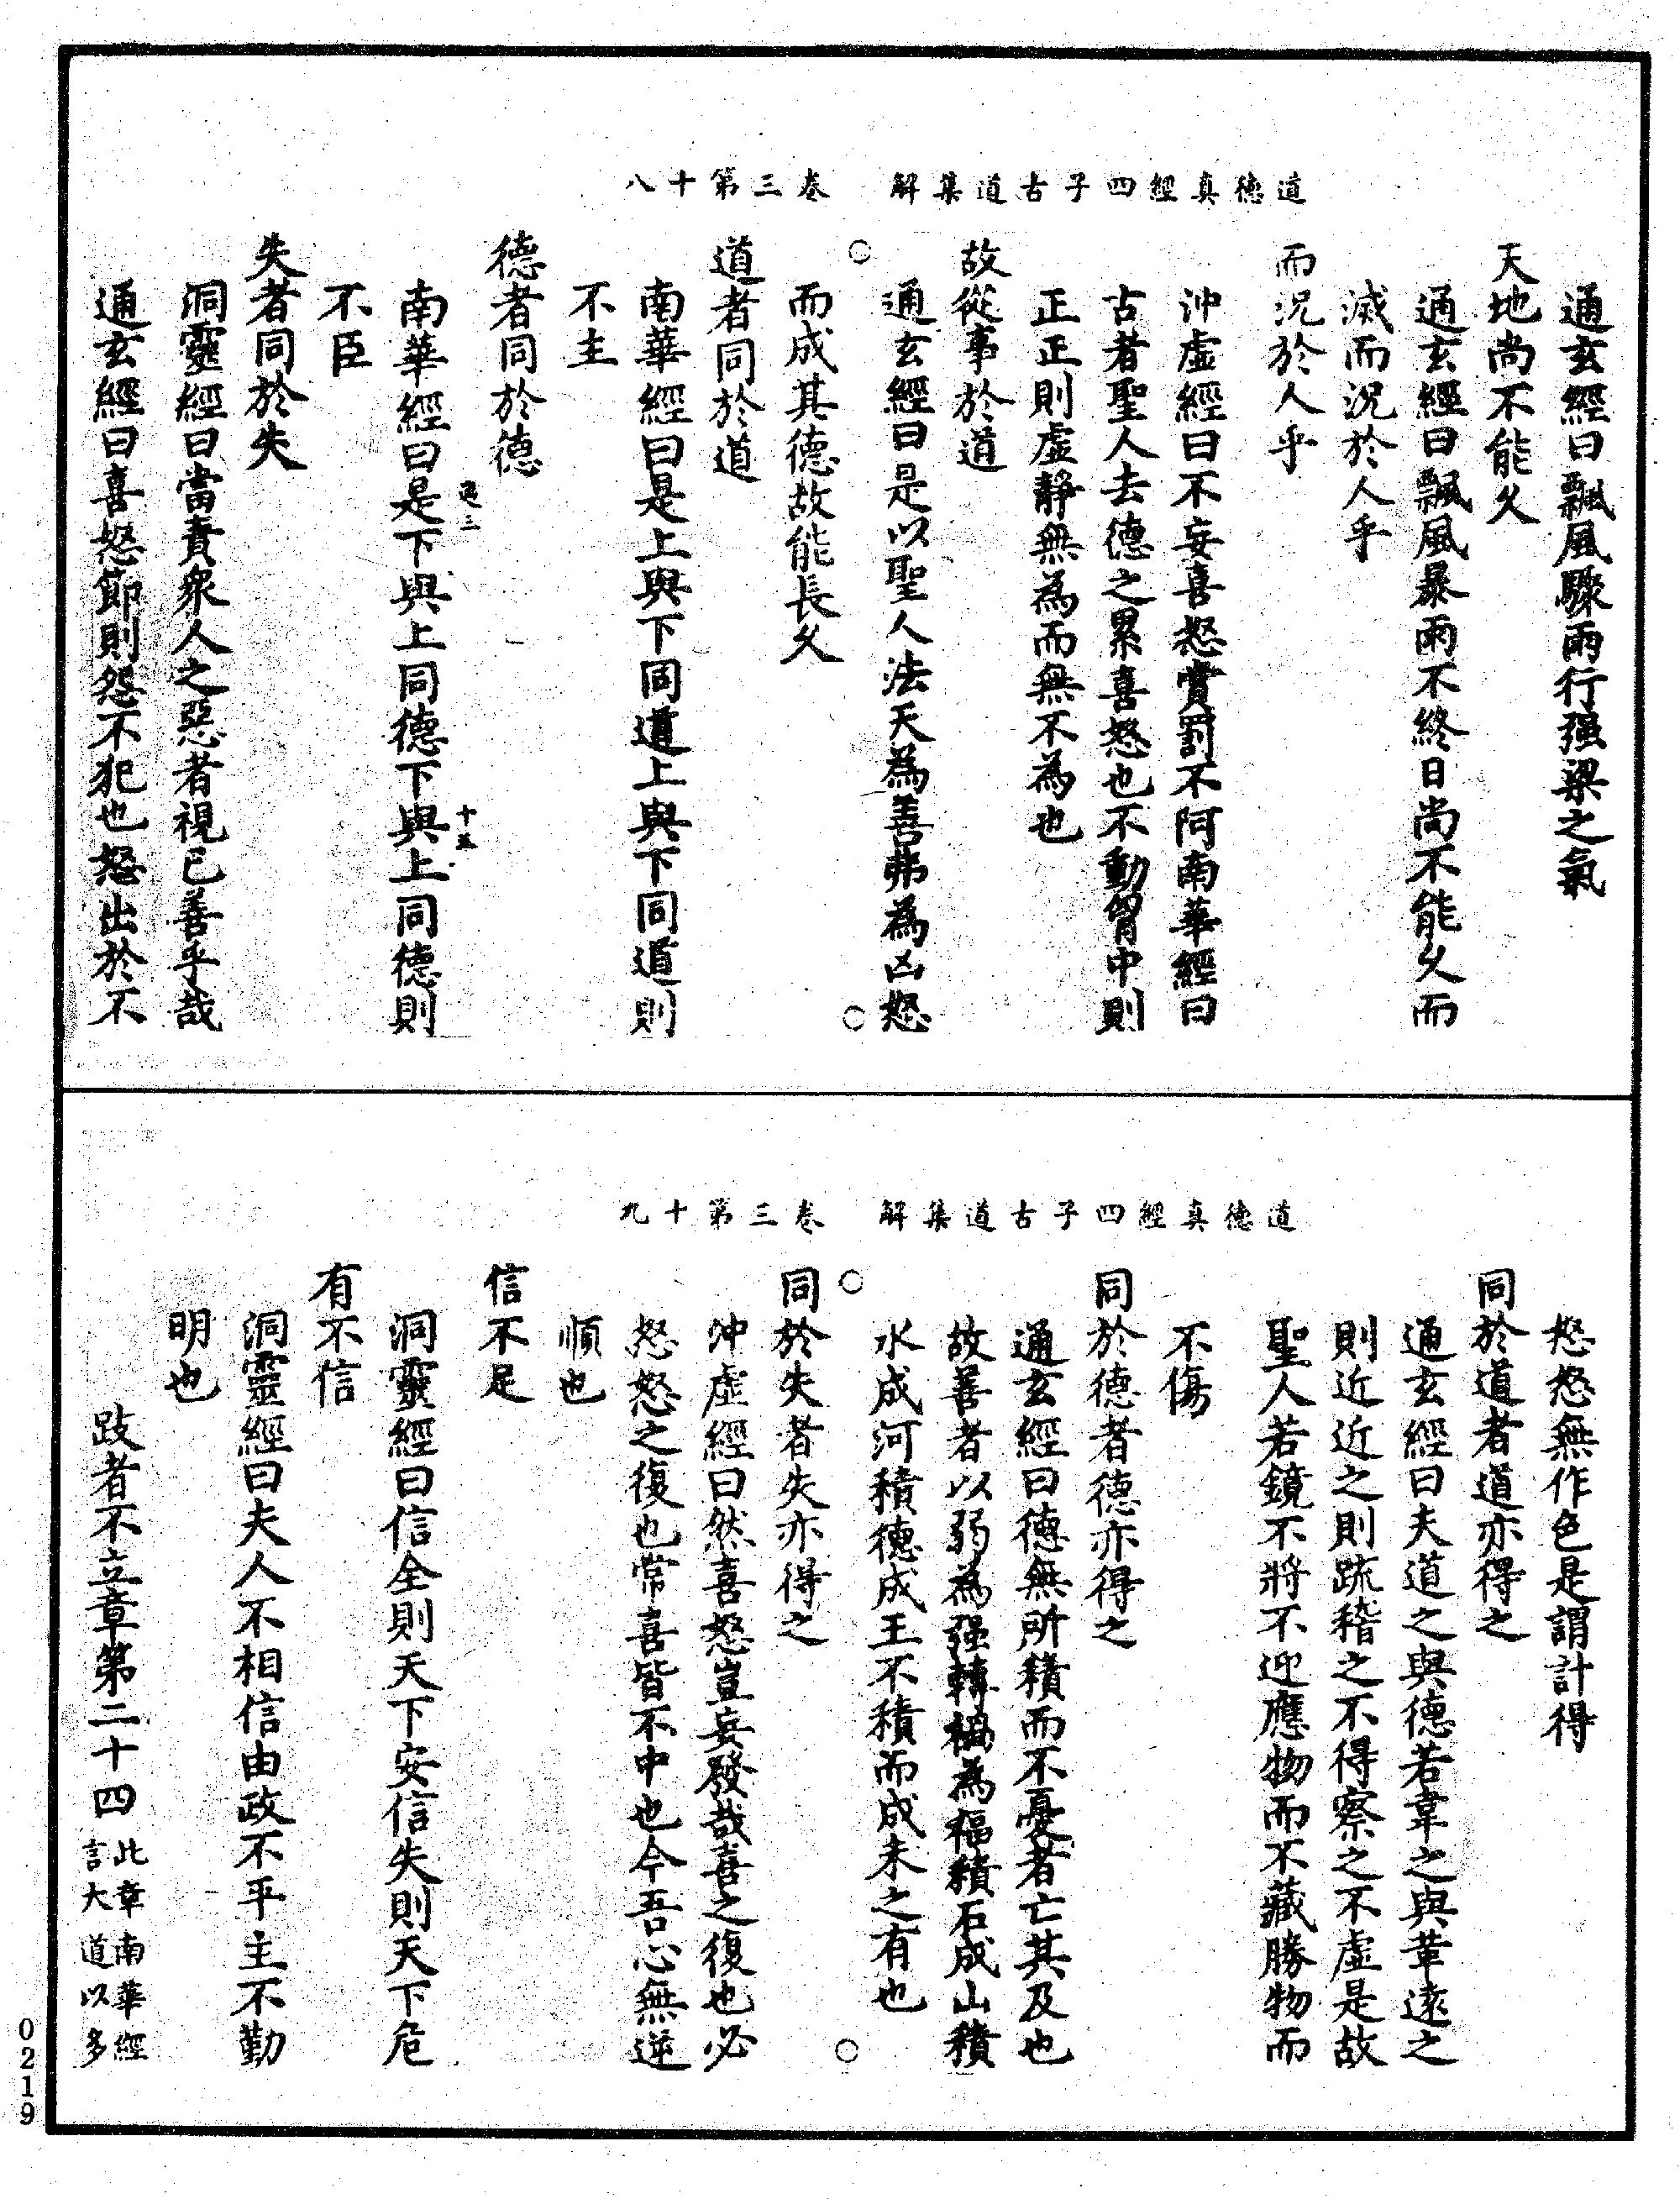 道德真經四子古道集解　卷三第十八
通玄經曰飄風驟雨行强梁之氣
天地尚不能久
通玄經曰飄風暴雨不終日尚不能久而
滅而況於人乎
而況於人乎
沖虛經曰不妄喜怒賞罰不阿南華經曰
古者聖人去德之累喜怒也不動胷中則
正正則虛靜無為而無不為也
故從事於道
通玄經曰是以聖人法天為善弗為凶怒
而成其德故能長久
道者同於道
南華經曰是上與下同道上與下同道則
不主
德者同於德
十五
南華經曰是下與上同德下與上同德則
不臣
失者同於失
洞靈經曰當責衆人之惡者視已善乎哉
通玄經曰喜怒節則怨不犯也怒出於不
道德真經四子古道集解　卷三第十九
怒怒無作色是謂計得
同於道者道亦得之
通玄經曰夫道之與德若韋之與革遠之
則近近之則疏稽之不得察之不虛是故
聖人若鏡不將不迎應物而不藏勝物而
不傷
同於德者德亦得之
通玄經曰德無所積而不憂者亡其及也
故善者以弱為强轉禍為福積石成山積
水成河積德成王不積而成未之有也
同於失者失亦得之
沖虛經曰然喜怒豈妄發哉喜之復也必
怒怒之復也常喜皆不中也今吾心無逆
順也
信不足
洞靈經曰信全則天下安信失則天下危
有不信
洞靈經曰夫人不相信由政不平主不勤
明也
跂者不立章第二十四
此章南華經
言大道以多
0219